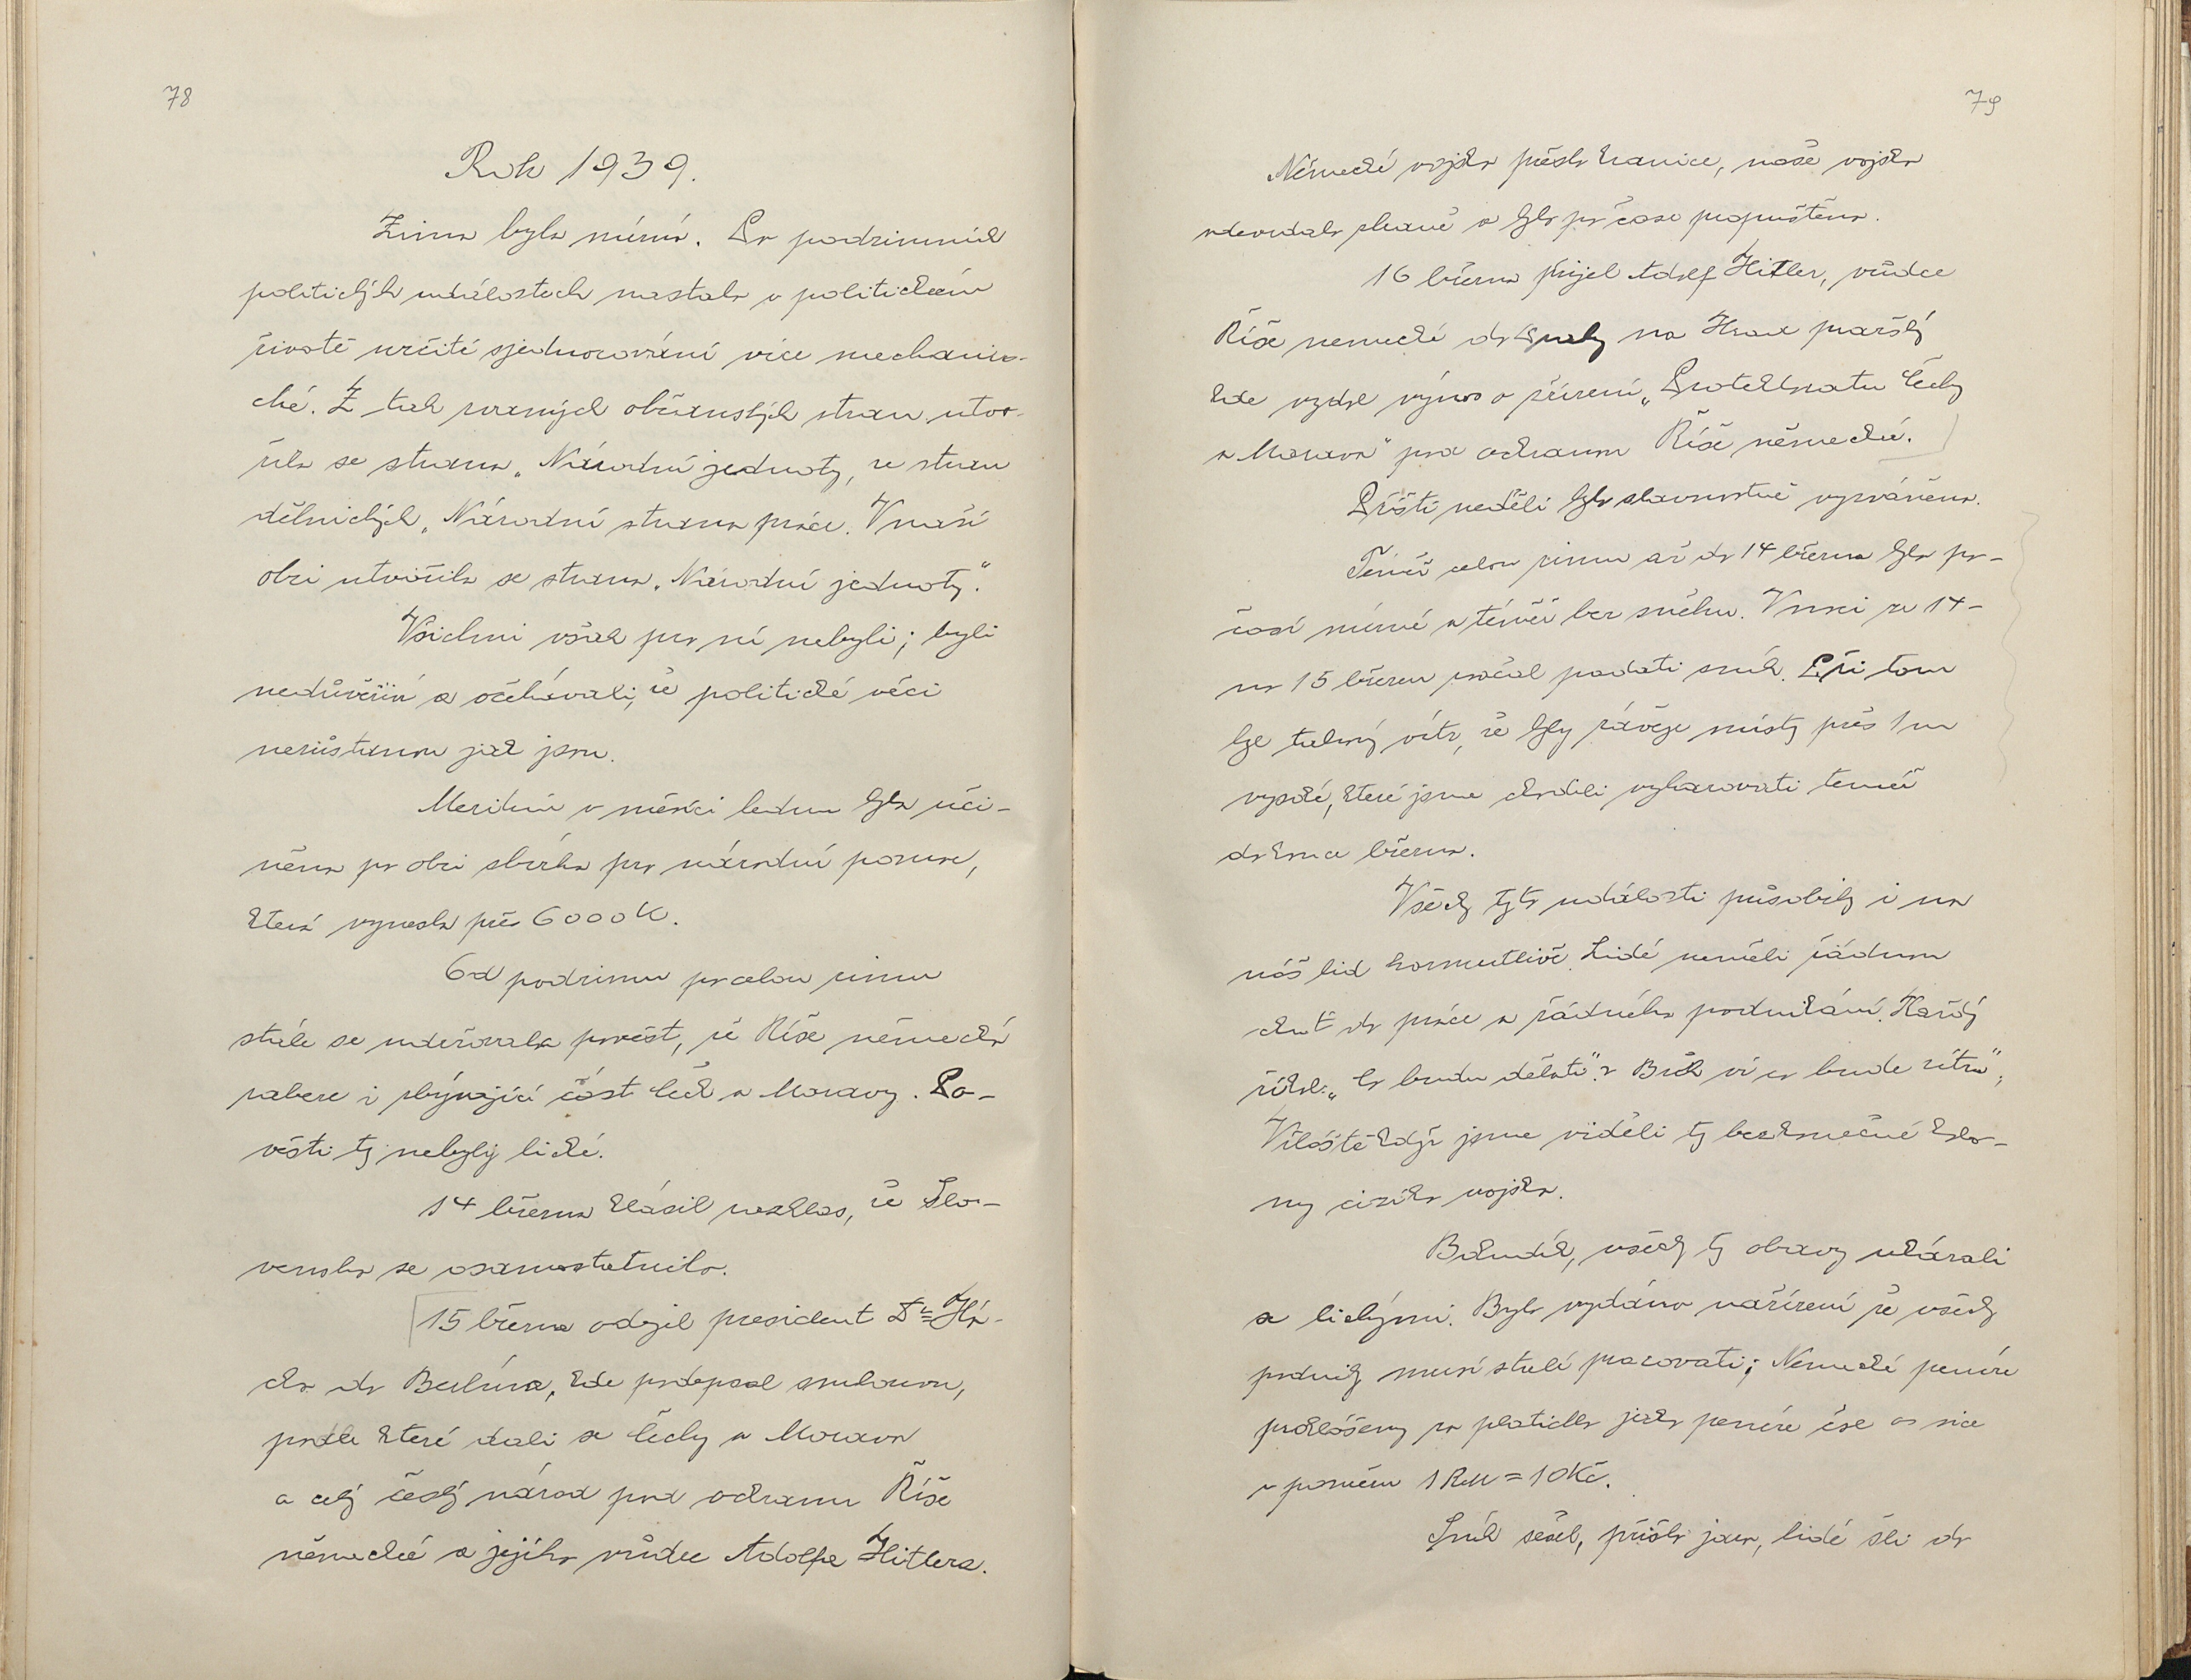 78
Rok 1939.
Zima byla mírná. Po podzimních
politických událostech nastalo v politickém
životě určité sjednocování více mechanic-
ké. Z tak zvaných občanských stran utvo-
řila se strana „Národní jednoty, ze stran
dělnických „Národní strana práce. V naší
obci utvořila se strana „Národní jednoty“.
Všichni však pro ní nebyli; byli
nedůvěřiví a očekávali, že politické věci
nezůstanou jak jsou.
Mezitím v měsíci lednu byla uči-
něna po obci sbírka pro národní pomoc,
která vynesla přes 6000 K.
Od podzimu po celou zimu
stále se udržovala pověst, že Říše německá
zabere i zbývající část Čech a Moravy. Po-
věsti ty nebyly liché.
14 března hlásil rozhlas, že Slo-
vensko se osamostatnilo.
15 března odejel president Dr Há-
cha do Berlína, kde podepsal smlouvu,
podle které dali se Čechy a Morava
a celý český národ pod ochranu Říše
německé a jejího vůdce Adolfa Hitlera.
79
Německé vojsko přešlo hranice, naše vojsko
odevzdalo zbraně a bylo po čase propuštěno.
16 března přijel Adolf Hitler, vůdce
Říše německé do Prahy na Hrad pražský
kde vydal výnos o zřízení „Protektorátu Čechy
a Morava“ pod ochranou Říše německé.
Příští neděli bylo slavnostně vyzváněno.
Téměř celou zimu až do 14 března bylo po-
časí mírné a téměř bez sněhu. V noci ze 14-
na 15 březen začal padati sníh. Při tom
byl takový vítr, že byly závěje místy přes 1 m
vysoké, které jsme chodili vyhazovati téměř
do konce března.
Všechy tyto události působily i na
náš lid kormutlivě. Lidé neměli žádnou
chuť do práce a řádného podnikání. Každý
říkal: „Co budu dělati“? Bůh ví co bude zítra“,
Zvláště když jsme viděli ty bezkonečné kolo-
ny cizího vojska.
Bohudík, všechy ty obavy ukázali
se lichými. Bylo vydáno nařízení že všechy
podniky musí stále pracovati; Německé peníze
prohlášeny za platidlo jako peníze čsl. a sice
v poměru 1 RM = 10 Kč.
Sníh sešel, přišlo jaro, lidé šli do